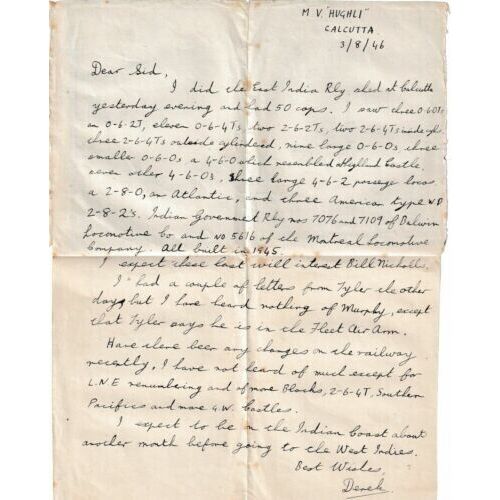 M V. "HUGHLI"
CALCUTTA.
3/8/46
Dear Sid,
I did the East India Rly shed at Calcutta
yesterday evening and had 50 cops. I saw three 0-6-0Ts
an 0-6-2T, eleven 0-6-4Ts, two 2-6-2Ts, two 2-6-4Ts inside cyls
three 2-6-4Ts outside cylindered, nine large 0-6-0s three
smaller 0-6-0s, a 4-6-0 which resembled a Hylland Castle.
seven other 4-6-0s, three large 4-6-2 passenge locos.
a 2-8-0, an Atlantic, and three American type W.D
2-8-2s. Indian Government Rly nos 7076 and 7109 of Balwin
Locomotive Co and no 5616 of the Montreal Locomotive
Company. All built in 1945.
I expect these last will interest Bill Nicholls.
I had a couple of letters from Tyler the other
day, but I have heard nothing of Murphy, except
that Tyler says he is in the Fleet Air Arm.
Have there been any changes on the railway
recently, I have not heard of much except for
L.N.E renumbering and of more Blacks, 2-6-4T, Southern
Pacifics and more G.W. Castles.
I expect to be on the Indian Coast about
another month before going to the West Indies.
Best Wishes,
Derek